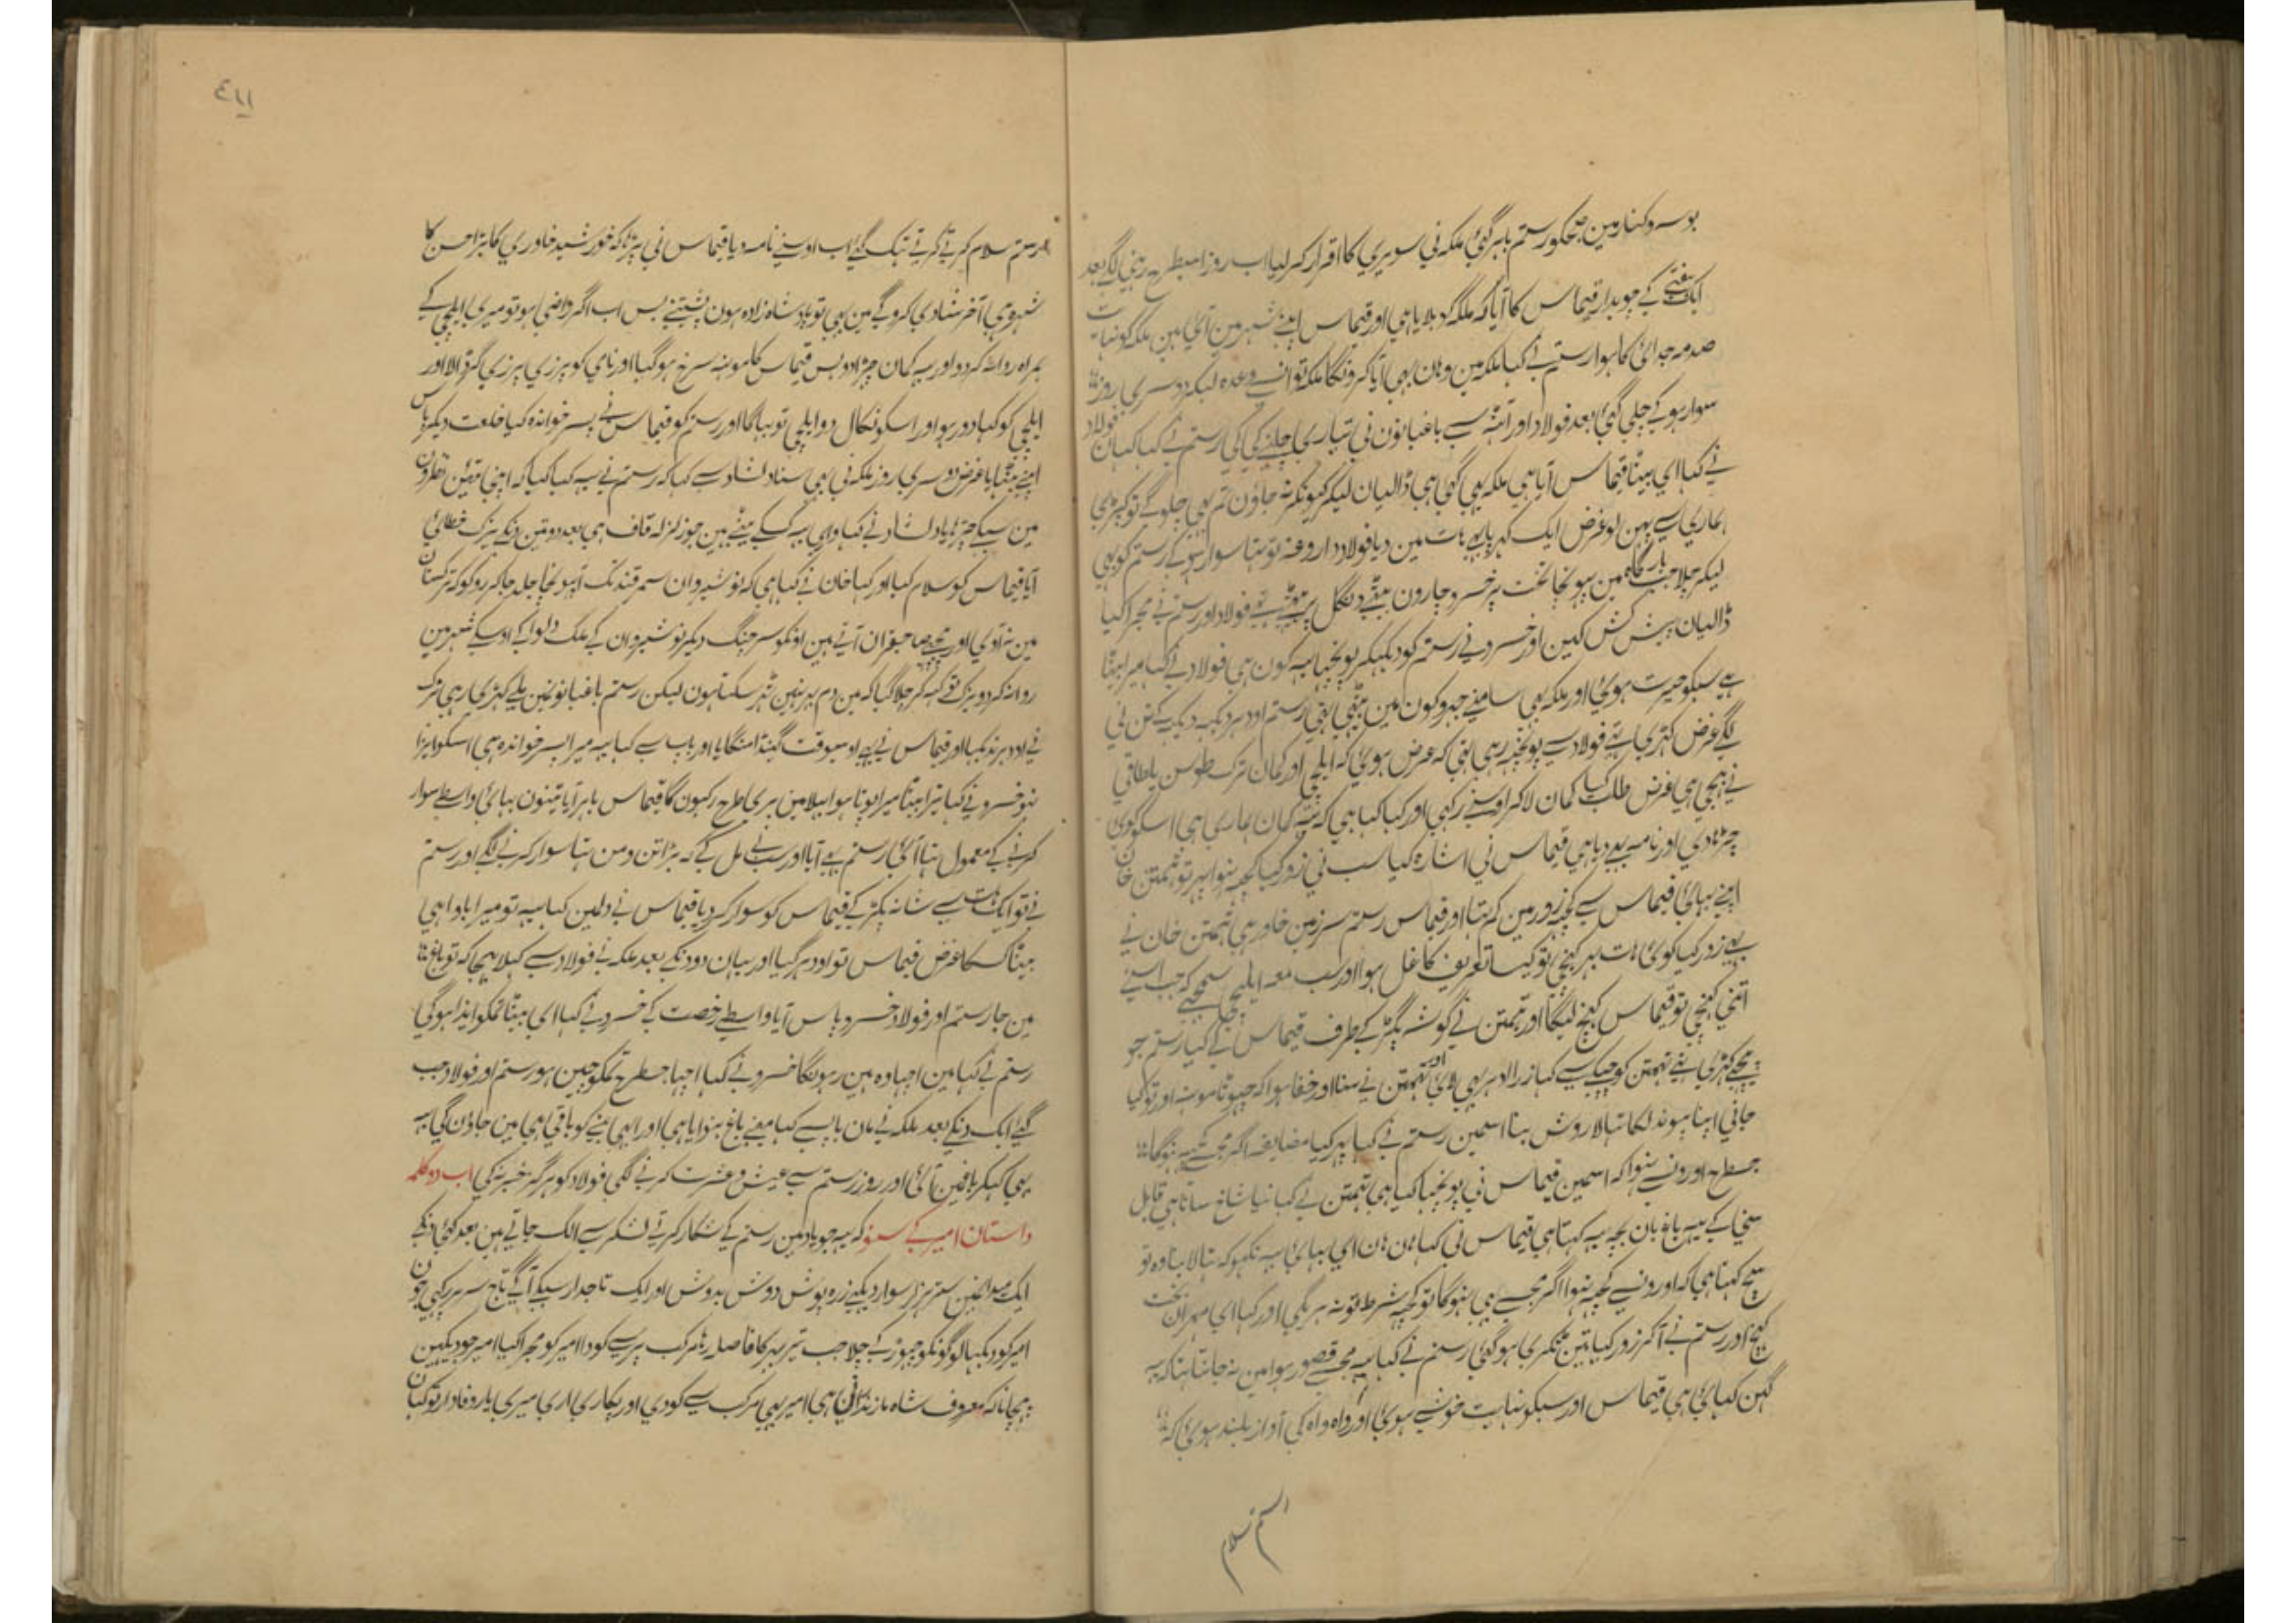 بوسہ و کنار مین صبحکو رستم باہر گئی ملکہ نی سویری کا اقرار کر لیا اب روز اسیطرح رہنی لگے بعد
ایک ہفتے کے چوبدار قیماس کا آیا کہ ملکہ کو بلایا ہی اور قیماس اپنے شہر مین آئی ہین ملکہ کو نہایت
صدمہ جدائی کا ہوا رستم نے کہا ملکہ مین وہان بہی آیا کرونگا ملکہ تو انسے وعدہ لیکر دوسری روز
سوار ہو کے چلی گئی بعد فولاد اور آمنہ سے باغبانون نی تیاری چلنے کی کی رستم نے کہا کہان فولاد
نے کہا ای بیٹا قیماس آیا ہی ملکہ بہی گئی ہی ڈالیان لیکر کیونکر نہ جاؤن تم بہی چلو گے تو کپڑی
ہماری سے پہن لو غرض ایک کہرپا ہات مین دیا فولاد داروغہ تو تہا سوار ہو کے رستم کو بہی
لیکر چلا جب بارگاہ مین پہونچا تخت پر خسرو چارون بیٹے دنگل پر بیٹہے تہے فولاد اور رستم نے مجرا کیا
ڈالیان پیش کش کین اور خسرو نے رستم کو دیکہکر پونچہا یہ کون ہی فولاد نے کہا میرا بیٹا
ہے سبکو حیرت ہوئی اور ملکہ بہی سامنے جہروکون مین بیٹہی تہی رستم اودہر دیکہہ دیکہہ کے
لگے غرض کہڑی اپنے فولاد سے پونچہہ رہی تہی کہ عرض ہوئی کہ ایلچی اور کمان ترک طوسن یلطاقی
نے بہیجی ہی غرض طلب کیا کمان لاکر اوسنے رکہی اور کہا کہا ہی کہ یہ کمان ہماری ہی اسکو کوئی
چڑہا دی اور نامہ بہی دیا ہی قیماس نی اشارہ کیا سب نی زور کیا کچہہ نہوا پہر تو تہمتن خان
اپنے بہائی قیماس سے کچہہ زور مین کم تہا اور قیماس رستم سرزمین خاور ہی تہمتن خان نے
بہی زور کیا کوئی ہات بہر کہنچی تو کیسا تعریف کا غل ہوا اور سب معہ ایلچی سمجہے کہ جب اسنے
اتنی کہنچی تو قیماس کہنچ لیگا اور تہمتن نے گوشہ پگڑ کے طرف قیماس کے کیا رستم جو
پیچہے کہڑی تہے تہمتن کو چپکے سے کہا زرا ادہر بہی لائی اور تہمتن نے سنا اور خفا ہوا کہ چہوٹا مونہہ اور تو کیا
جانی اپنا پہوند لکاتہالا روش بنا اسمین رستم نے کہا پہر کیا مضایقہ اگر مجہسے کچہہ نہوگا
جسطرح اورونسے نہوا کہ اسمین قیماس نی پونچہا کیا ہی تہمتن نے کہا نیا شاخ سانا ہی قابل
سنی کے یہہ باغبان بچہ یہ کہتا ہی قیماس نی کہا ہان ہان ای بہائی یہ نکہو کہ تہالا بنا وہ تو
سچ کہتا ہی کہ اورونسے کچہہ نہوا اگر مجہسے بہی نہوگا تو کچہہ شرط تو نہ ہریگی اور کہا ای مہربان تخت
کہنچ اور رستم نے آکر زور کیا تین ٹکری ہوگئی رستم نے کہا یہ مجہسے قصور ہوا مین نہ جانتا تہا کہ یہ
گہن کہائی ہی قیماس اور سبکو نہایت خوشی ہوئی اور واہ واہ کی آواز بلند ہوئی کہ
رستم سلام
٤١١
رستم سلام کرتے کرتے تہک گئے اب اوسنے نامہ دیا قیماس نی پڑہا کہ خورشید خاوری کا بڑا حسن کا
شہرہ ہی آخر شادی کروگے مین بہی تو بادشاہ زادہ ہون پشتنے بس اب اگر راضی ہو تو میری ایلچی کے
ہمراہ روانہ کر دو اور یہ کمان چڑہا دو بس قیماس کا مونہہ سرخ ہوگیا اور نامی کو پرزی پرزی کر ڈالا اور
ایلچی کو کہا دور ہو اور اسکو نکال دو ایلچی تو بہاگا اور رستم کو قیماس نے پسر خواندہ کیا خلعت دیکر پاس
اپنے بٹہایا غرض دوسری روز ملکہ نی بہی سنا دلشاد سے کہا کہ رستم نے یہ کیا کیا کہ اپنی تئین نظرون
مین سبکے چڑہایا دلشاد نے کہا واہ یہ کسکے بیٹے ہین جو زلزلہ قاف ہی بعد دو تین دنکے بزرک خطائی
آیا قیماس کو سلام کیا اور کہا خان نے کہا ہی کہ نوشیروان سمرقند تک آ پہونچا جلد جا کر روکو کہ ترکستان
مین نہ آوی اور پیچہے صاحبقران آتے ہین اونکو سر جنگ دیکر نوشیروان کے ملک دلوا کے اوسکے شہر مین
روانہ کر دو بزرک تو کہہ کر چلا گیا کہ مین دم بہر نہین ٹہر سکتا ہون لیکن رستم باغبانونمین پلے کہڑی رہی
نے اودہر نہ کیا اور قیماس نے بہی اوسیوقت گینڈا منگایا اور باپ سے کہا یہ میرا پسر خواندہ ہی اسکو ایزا
نہو خسرو نے کہا تیرا بیٹا میرا پوتا ہوا بہلا مین بری طرح رکہون گا قیماس باہر آیا تینون بہائی واسطے سوار
کرنے کے معمول تہا آئی رستم بہی آیا اور سب نے مل کے کہ بڑا تن و من تہا سوار کرنے لگے اور رستم
نے تو ایک ہات سے شانہ پکڑ کے قیماس کو سوار کر دیا قیماس نے دلمین کہا یہ تو میرا باوا ہی
بیٹا کسکا غرض قیماس تو اودہر گیا اور یہان دو دنکے بعد ملکہ نے فولاد سے کہلا بہیجا کہ تو باغ
مین جا رستم اور فولاد خسرو پاس آیا واسطے رخصت کے خسرو نے کہا ای بیٹا تمکو ایذا ہوگی
رستم نے کہا مین اچہا وہ ہین رہونگا خسرو نے کہا اچہا جسطرح تمکو چین ہو رستم اور فولاد جب
گئے ایک دنکے بعد ملکہ نے مان باپ سے کہا مینے باغ بنوایا ہی اور ابہی بننے کو باقی ہی مین جاؤن گی یہ
بہی کہہکر باغمین آئی اور روز رستم سے عیش و عشرت کرنے لگی فولاد کو ہرگز خبر نہ کی اب دو کلمہ
داستان امیر کے سنو کہ یہ جو یاد مین رستم کے شکار کرتے لشکر سے الگ جاتے ہین بعد کئی دنکے
ایک میدانمین ستر ہزار سوار دیکہے زرہ پوش دوش بدوش اور ایک تاجدار سبکے آگے تاج سر پر رکہی جون
امیر کو دیکہا لوگونکو چہوڑ کے چلا جب تیر بہر کا فاصلہ رہا مرکب پر سے کودا امیر کو مجرا کیا امیر جو دیکہین
پہچانا کہ معروف شاہ مازندرانی ہی امیر بہی مرکب سے کودی اور پکاری اری میری یار وفادار تو کہان